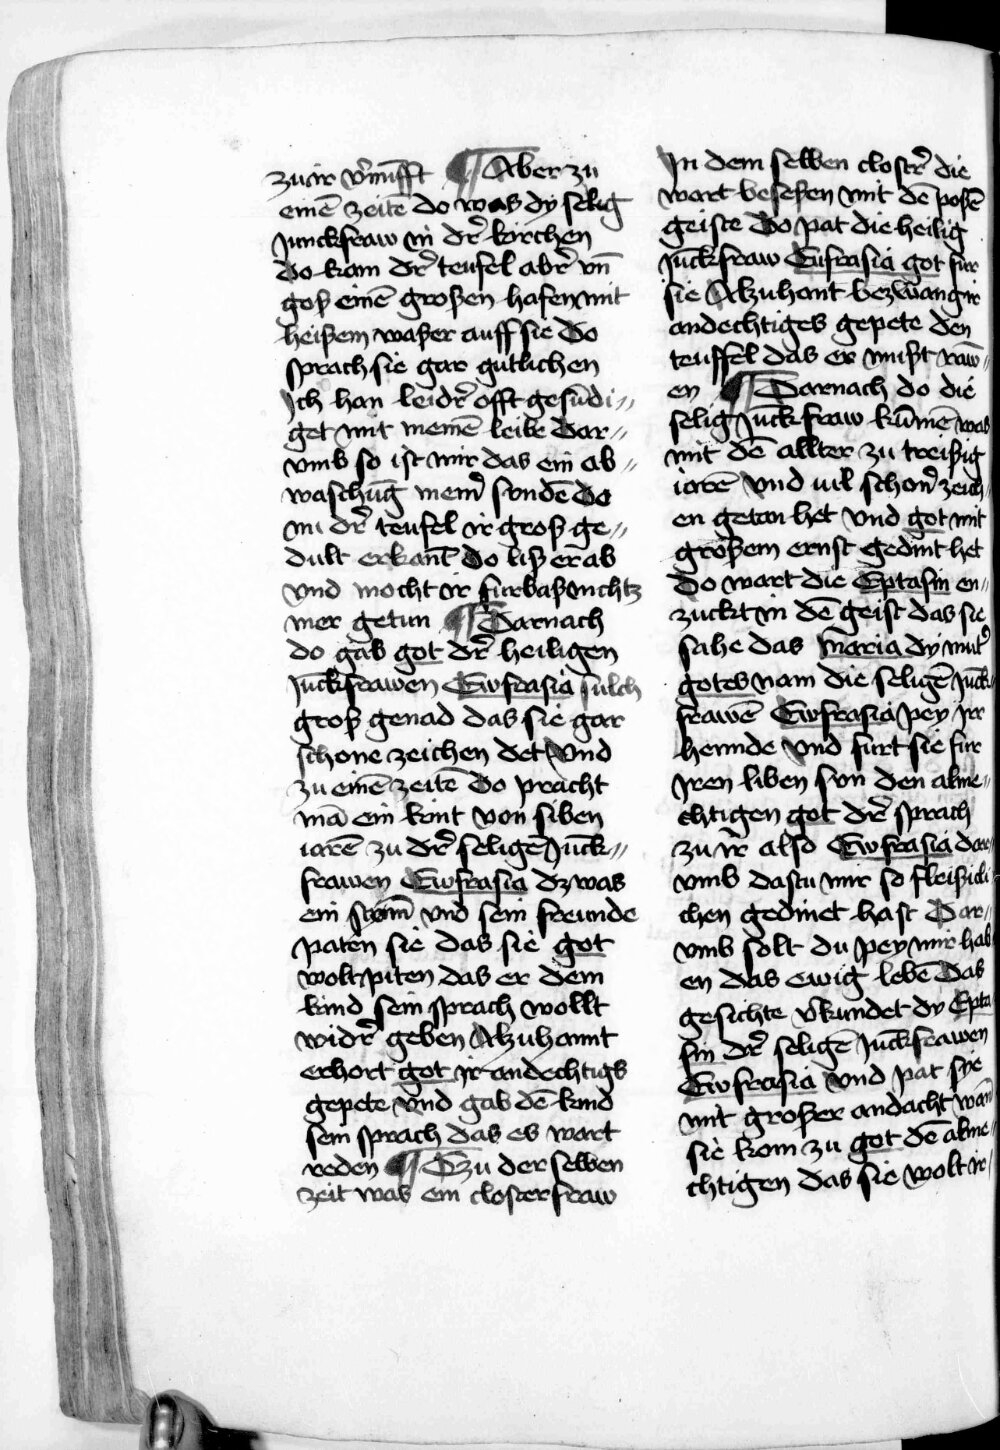 zu ir v̄nu᷑fft ¶ Aber zu
einē zeitē do was dy selig
junckfraw in dr̄ kirchen
do kam dr̄ teufel abr̄ vn̄
goß einē großen hafen mit
heißem waßer auff sie Do
sprach sie gar gutlichen
Ich han leidr̄ offt gesūdi〃
get mit meinē leibe Dar〃
vmb so ist mir das ein ab〃
waschūg mein̄ sunden Do
nu dr̄ teufel ir groß ge〃
dult erkant̄ Do liß er ab
vnd mocht ir furbaß nichtz
mer getun ¶ Darnach
do gab got dr̄ heiligen
Jūckfrawen Ewfrasia sulch
groß genad das sie gar
schone zeichen det Vnd
zu einē zeitē Do pracht
mā ein kint von siben
iarē zu dr̄ seligē Jūck〃
frawen Ewfrasia dz was
ein stum̄ vnd sein freunde
paten sie das sie got
wolt piten das er dem
kind sein sprach wollt
widr̄ geben Alzuhannt
erhort got ir andechtigs
gepete vnd gab dē kind
sein sprach das es wart
reden ¶ Tzu der selben
zeit was ein closterfraw
In dem selben clostr̄ die
wart beseßen mit dē posē
geiste Do pat die heilig
Jūckfraw Eufrasia got fur
sie Alzuhant bezwang ir
andechtiges gepete den
teuffel das er mußt raw̄〃
en ¶ Darnach do die
selig Jūckfraw kūmē was
mit dē allter zu treißig
iarē Vnd vil schon̄ zeich
en getan het Vnd got mit
großem ernst gedint het
Do wart die Eptasin en〃
zuckt in dē geist das sie
sahe das Maria dy mut̄
gotes nam die seligē Jūck
frawē Ewfrasia pey irr
hennde Vnd furt sie fur
Jren liben sun den alme〃
chtigen got dr̄ sprach
zu ir̄ also Ewfrasia dar
vmb dastu mir so fleißicli
chen gedinet hast Dar〃
vmb solt du pey mir hab
en das ewig lebē Das
gesichte v̄kundet dy Epta
sin dr̄ seligē Jūckfrawen
Ewfrasia Vnd pat sie
mit großer andacht wan̄
sie kom zu got dē alme〃
chtigen das sie wolt ir